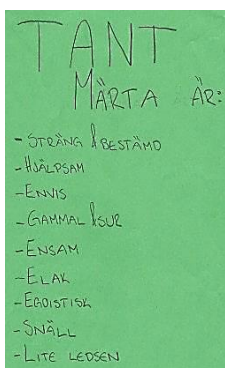 TANT
MÄRTA ÄR:
- STRÄNG & BESTÄMD
- HJÄLPSAM
- ENVIS
- GAMMAL & SUR
- ENSAM
- ELAK
- EGOISTISK
- SNÄLL
- LITE LEDSEN